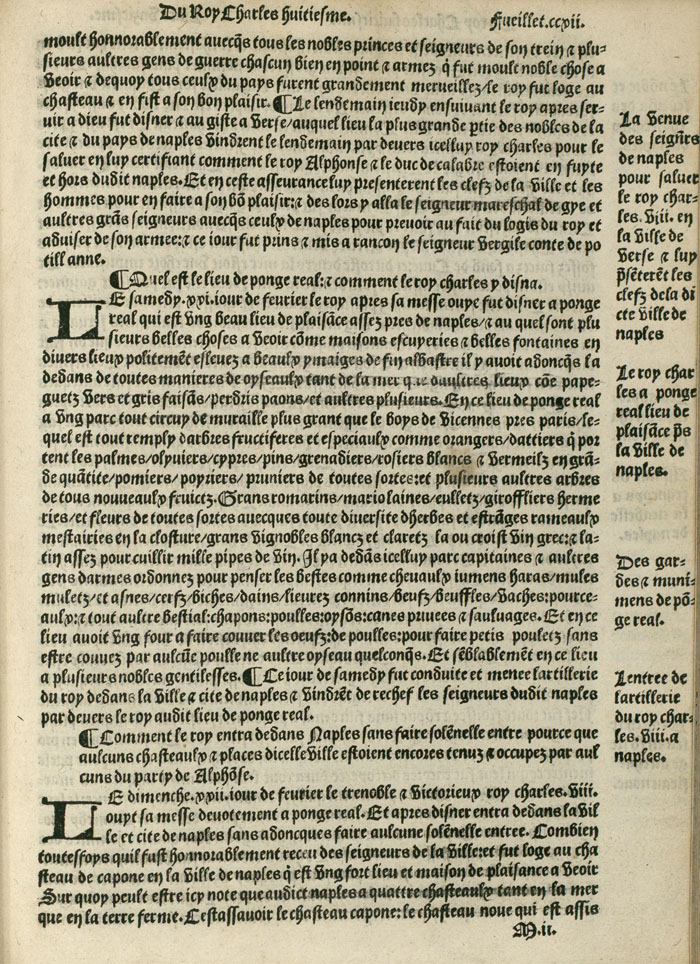 Du Roy Charles huitiesme.
Fueillet.ccxvii.
moult honnorablement auecq̃s tous les nobles princes et seigneurs de son trein ⁊ plu-
sieurs aultres gens de guerre chascun bien en point ⁊ armez q̃ fut moult noble chose a
veoir ⁊ dequoy tous ceulx du pays furent grandement merueillez/le roy fut loge au
chasteau ⁊ en fist a son bon plaisir. ¶Le lendemain ieudy ensuiuant le roy apres ser-
uir a dieu fut disner ⁊ au giste a Verse/auquel lieu la plus grande p̃tie des nobles de la
cite ⁊ du pays de naples vindrent le lendemain par deuers icelluy roy charles pour le
saluer en luy certifiant comment le roy Alphonse ⁊ le duc de calabre estoient en fuyte
et hors dudit naples. Et en ceste asseurance luy presenterent les clefz de la ville et les
hommes pour en faire a son bõ plaisir:⁊ des lors y alla le seigneur mareschal de gye et
aultres grãs seigneurs auecq̃s ceulx de naples pour preuoir au fait du logis du roy et
aduiser de son armee:⁊ ce iour fut prins ⁊ mis a rancon le seigneur Vergile conte de po
till anne.
¶Quel est le lieu de ponge real:⁊ comment le roy charles y disna.
LE samedy.xxi.iour de feurier le roy apres sa messe ouye fut disner a ponge
real qui est vng beau lieu de plaisãce assez pres de naples/⁊ au quel sont plu
sieurs belles choses a veoir cõme maisons escuyeries ⁊ belles fontaines en
diuers lieux politemẽt esleuez a beaulx ymaiges de fin albastre il y auoit adoncq̃s la
dedans de toutes manieres de oyseaulx tant de la mer que daultres lieux cõe pape-
guetz vers et gris faisãs/perdris paons/et aultres plusieurs. En ce lieu de ponge real
a vng parc tout circuy de muraille plus grant que le boys de vicennes pres paris/le-
quel est tout remply darbres fructiferes et especiaulx comme orangers/dattiers q̃ por
tent les palmes/olyuiers/cypres/pins/grenadiers/rosiers blancs ⁊ vermeilz en grã-
de quãtite/pomiers/popriers/pruniers de toutes sortes:et plusieurs aultres arbres
de tous nouueaulx fruictz. Grans romarins/mariolaines/eulletz/giroffliers herme
ries/et fleurs de toutes sortes auecques toute diuersite dherbes et estrãges rameaulx
mestairies en la closture/grans vignobles blancz et claretz la ou croist vin grec:⁊ la-
tin assez pour cuillir mille pipes de vin. Il ya dedãs icelluy parc capitaines ⁊ aultres
gens darmes ordonnez pour penser les bestes comme cheuaulx iumens haras/mules
muletz/et asnes/cerfz/biches/dains/lieurez connins/beufz/beuffles/vaches:pource-
aulx:⁊ tout aultre bestial:chapons:poulles:oysõs:canes priuees ⁊ sauluages. Et en ce
lieu auoit vng four a faire couuer les oeufz:de poulles:pour faire petis pouletz sans
estre couuez par aulcũe poulle ne aultre oyseau quelconq̃s. Et sẽblablemẽt en ce lieu
a plusieurs nobles gentilesses. ¶Ce iour de samedy fut conduite et menee lartillerie
du roy dedans la ville ⁊ cite de naples ⁊ vindrẽt de rechef les seigneurs dudit naples
par deuers le roy audit lieu de ponge real.
¶Comment le roy entra dedans Naples sans faire solẽnelle entre pource que
aulcuns chasteaulx ⁊ places dicelle ville estoient encores tenuz ⁊ occupez par aul
cuns du party de Alphõse.
LE dimenche.xxii.iour de feurier le trenoble ⁊ victorieux roy charles.viii.
ouyt sa messe deuotement a ponge real. Et apres disner entra dedans la vil
le et cite de naples sans adoncques faire aulcune solẽnelle entree. Combien
toutesfoys quil fust honnorablement receu des seigneurs de la ville:et fut loge au cha
steau de capone en la ville de naples q̃ est vng fort lieu et maison de plaisance a veoir
Sur quoy peult estre icy note que audict naples a quattre chasteaulx tant en la mer
que en la terre ferme. Cestassauoir le chasteau capone: le chasteau noue qui est assis
M.ii.
La venue
des seigñrs
de naples
pour saluer
le roy char-
les.viii. en
la ville de
Verse ⁊ luy
p̃sẽterẽt les
clefz de la di
cte ville de
naples
Le roy char
les a ponge
real lieu de
plaisãce p̃s
la ville de
naples.
Des gar-
des ⁊ muni-
mens de põ-
ge real.
Lentree de
lartillerie
du roy char-
les.viii.a
naples.